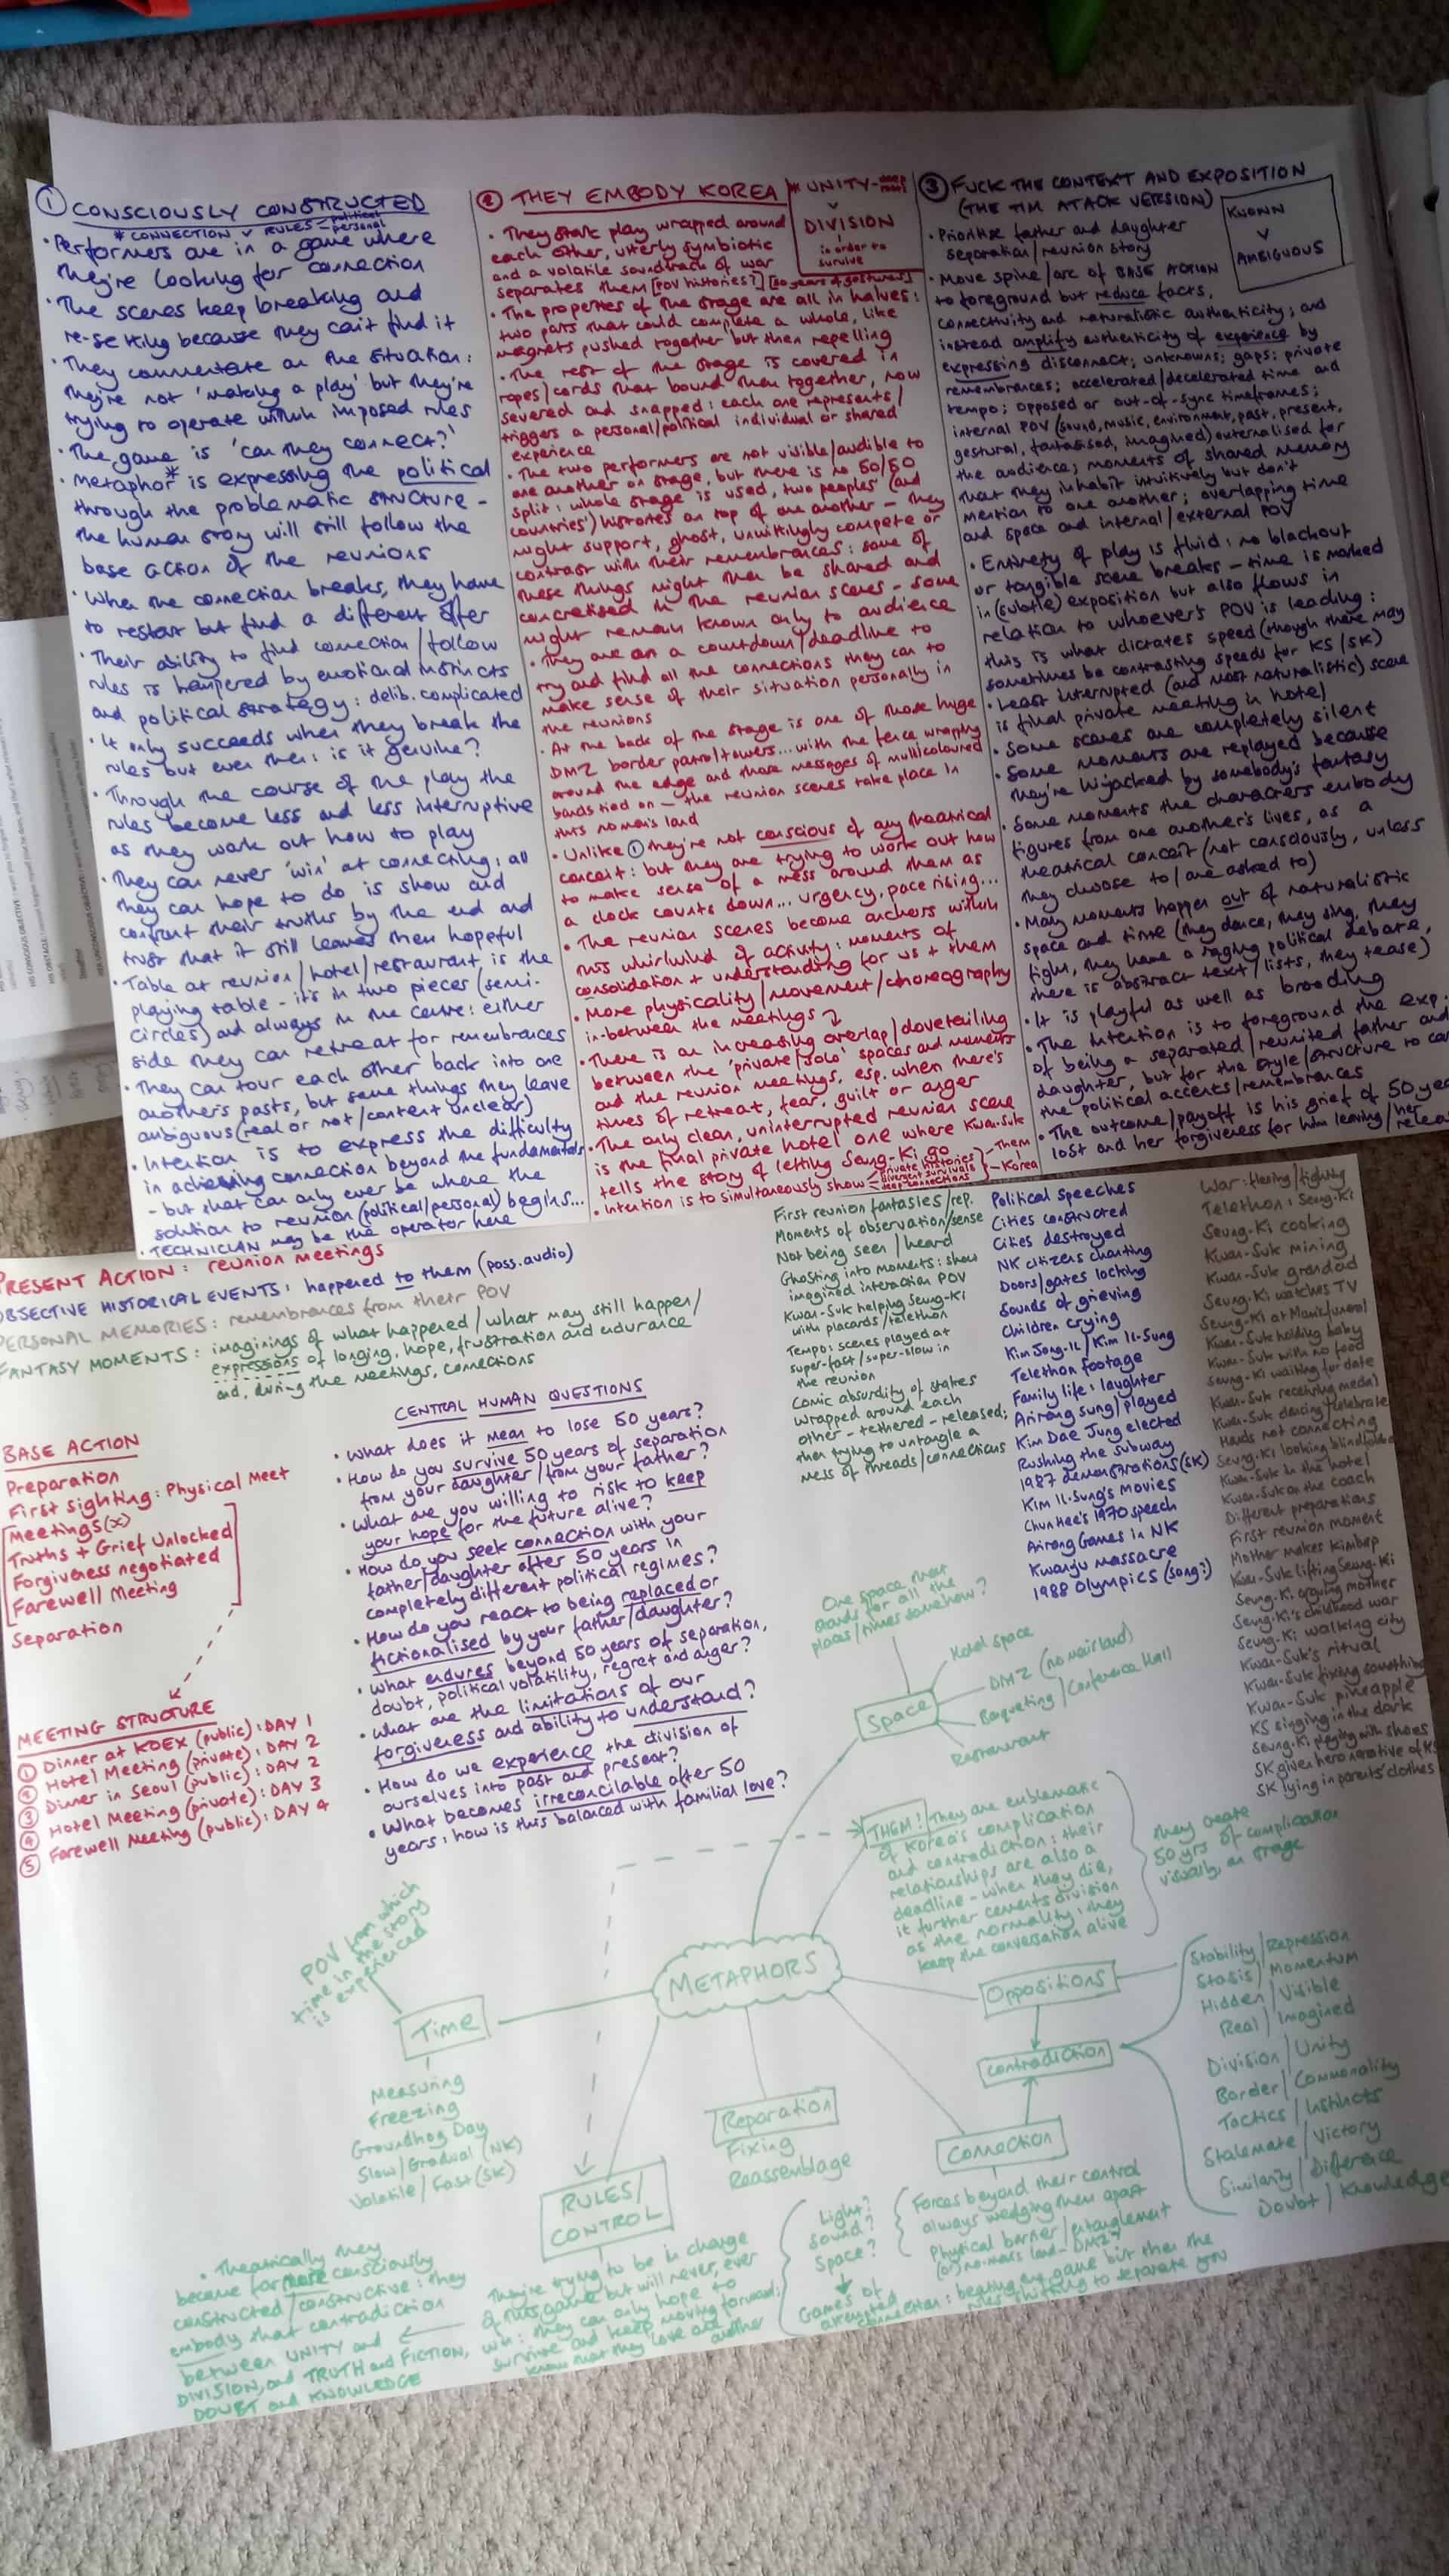 ① CONSCIOUSLY CONSTRUCTED
* CONNECTION v RULES - political personal
• Performers are in a game where
they're looking for connection
• The scenes keep breaking and
re-setting because they can't find it
• They commentate on the situation:
they're not 'making a play' but they're
trying to operate within imposed rules
• The game is 'can they connect?'
• Metaphor* is expressing the political
through the problematic structure -
the human story will still follow the
base action of the reunions
• When the connection breaks, they have
to restart but find a different offer
• Their ability to find connection/follow
rules is hampered by emotional instincts
and political strategy: delib. complicated
• It only succeeds when they break the
rules but even then: is it genuine?
• Through the course of the play the
rules become less and less interruptive
as they work out how to play
• They can never 'win' at connecting: all
they can hope to do is show and
confront their truths by the end and
trust that it still leaves them hopeful
• Table at reunion/hotel/restaurant is the
playing table - it's in two pieces (semi-
circles) and always in the centre: either
side they can retreat for remembrances
• They can tour each other back into one
another's pasts, but some things they leave
ambiguous (real or not/content unclear)
• Intention is to express the difficulty
in achieving connection beyond the fundamentals
- but that can only ever be where the
solution to reunion (political/personal) begins...
• TECHNICIAN may be the operator here
② THEY EMBODY KOREA
* UNITY - deep roots
v
DIVISION
in order to
survive
• They start play wrapped around
each other, utterly symbiotic
and a volatile soundtrack of war
separates them [POV histories?] [50 years of gestures]
• The properties of the stage are all in halves:
two parts that could complete a whole, like
magnets pushed together but then repelling
• The rest of the stage is covered in
ropes/cords that bound them together, now
severed and snapped: each one represents/
triggers a personal/political individual or shared
experience
• The two performers are not visible/audible to
one another on stage, but there is no 50/50
split: whole stage is used, two peoples' (and
countries') histories on top of one another - they
might support, ghost, unwittingly compete or
contrast with their remembrances: some of
these things might then be shared and
concretised in the reunion scenes - some
might remain known only to audience
• They are on a countdown/deadline to
try and find all the connections they can to
make sense of their situation personally in
the reunions
• At the back of the stage is one of those huge
DMZ border patrol towers... with the fence wrapping
around the edge and those messages of multicoloured
bands tied on - the reunion scenes take place in
this no man's land
• Unlike ① they're not conscious of any theatrical
conceit: but they are trying to work out how
to make sense of a mess around them as
a clock counts down... urgency, pace rising...
• The reunion scenes become anchors within
this whirlwind of activity: moments of
consolidation + understanding for us + them
• More physicality/movement/choreography
in-between the meetings
• There is an increasing overlap/dovetailing
between the 'private/solo' spaces and moments
and the reunion meetings, esp. when there's
times of retreat, fear, guilt or anger
• The only clean, uninterrupted reunion scene
is the final private hotel one where Kwan-Suk
tells the story of letting Seung-Ki go
• Intention is to simultaneously show
private histories
divergent survivals
deep connections
- Them
- Korea
③ FUCK THE CONTEXT AND EXPOSITION
(THE TIM ATACK VERSION)
KNOWN
v
AMBIGUOUS
• Prioritise father and daughter
separation/reunion story
• Move spine/arc of BASE ACTION
to foreground but reduce facts,
connectivity and naturalistic authenticity; and
instead amplify authenticity of experience by
expressing disconnect; unknowns; gaps; private
remembrances; accelerated/decelerated time and
tempo; opposed or out-of-sync timeframes;
internal POV (sound, music, environment, past, present,
gestural, fantasised, imagined) externalised for
the audience; moments of shared memory
that they inhabit intuitively but don't
mention to one another; overlapping time
and space and internal/external POV
• Entirety of play is fluid: no blackout
or tangible scene breaks - time is marked
in (subtle) exposition but also flows in
relation to whoever's POV is leading:
this is what dictates speed (though there may
sometimes be contrasting speeds for KS/SK)
• Least interrupted (and most naturalistic) scene
is final private meeting in hotel
• Some scenes are completely silent
• Some moments are replayed because
they're hijacked by somebody's fantasy
• Some moments the characters embody
figures from one another's lives, as a
theatrical conceit (not consciously, unless
they choose to/are asked to)
• Many moments happen out of naturalistic
space and time (they dance, they sing, they
fight, they have a raging political debate,
there is abstract text/lists, they tease)
• It is playful as well as brooding
• The intention is to foreground the exp.
of being a separated/reunited father and
daughter, but for the style/structure to
the political accents/remembrances
• The outcome/payoff is his grief of 50
lost and her forgiveness for him leaving/her
PRESENT ACTION: reunion meetings
OBJECTIVE HISTORICAL EVENTS: happened to them (poss. audio)
PERSONAL MEMORIES: remembrances from their POV
FANTASY MOMENTS: imaginings of what happened/what may still happen/
expressions of longing, hope, frustration and endurance
and, during the meetings, connections
BASE ACTION
Preparation
First Sighting: Physical Meet
Meetings (x)
Truths + Grief Unlocked
Forgiveness negotiated
Farewell Meeting
Separation
MEETING STRUCTURE
① Dinner at KOEX (public): DAY 1
② Hotel Meeting (private): DAY 2
③ Dinner in Seoul (public): DAY 2
④ Hotel Meeting (private): DAY 3
⑤ Farewell Meeting (public): DAY 4
CENTRAL HUMAN QUESTIONS
• What does it mean to lose 50 years?
• How do you survive 50 years of separation
from your daughter/from your father?
• What are you willing to risk to keep
your hope for the future alive?
• How do you seek connection with your
father/daughter after 50 years in
completely different political regimes?
• How do you react to being replaced or
fictionalised by your father/daughter?
• What endures beyond 50 years of separation,
doubt, political volatility, regret and anger?
• What are the limitations of our
forgiveness and ability to understand?
• How do we experience the division of
ourselves into past and present?
• What becomes irreconcilable after 50
years: how is this balanced with familial love?
First reunion fantasies/rep.
Moments of observation/sense
Not being seen/heard
Ghosting into moments: show
imagined interaction POV
Kwan-Suk helping Seung-Ki
with placards/telethon
Tempo: scenes played at
super-fast/super-slow in
the reunion
Comic absurdity of stakes
Wrapped around each
other - tethered - released;
then trying to untangle a
mess of threads/connections
Political speeches
Cities constructed
Cities destroyed
NK citizens chanting
Doors/gates locking
Sounds of grieving
Children crying
Kim Jong-Il/Kim Il-Sung
Telethon footage
Family life: laughter
Arirang sung/played
Kim Dae Jung elected
Rushing the subway
1987 demonstrations (SK)
Kim Il-Sung's movies
Chun Hee's 1970 speech
Arirang Games in NK
Kwanju Massacre
1988 Olympics (song?)
War: fleeing/fighting
Telethon: Seung-Ki
Seung-Ki cooking
Kwan-Suk mining
Kwan-Suk grandad
Seung-Ki watches TV
Seung-Ki at Mum's funeral
Kwan-Suk holding baby
Kwan-Suk with no food
Seung-Ki waiting for date
Kwan-Suk receiving medal
Kwan-Suk dancing/celebrate
Hands not connecting
Seung-Ki looking blindfolded
Kwan-Suk in the hotel
Kwan-Suk on the coach
Different preparations
First reunion moment
Mother makes kimbap
Kwan-Suk lifting Seung-Ki
Seung-Ki arguing mother
Seung-Ki's childhood war
Seung-Ki walking city
Kwan-Suk's ritual
Kwan-Suk fixing something
Kwan-Suk pineapple
KS singing in the dark
Seung-Ki playing with shoes
SK gives hero narrative of KS
SK lying in parents' clothes
One space that
stands for all the
places/times somehow?
Space
Hotel space
DMZ (no man's land)
Banqueting/Conference Hall
Restaurant
THEM! They are emblematic
of Korea's complication
and contradiction: their
relationships are also a
deadline - when they die,
it further cements division
as the normality: they
keep the conversation alive
They create
50 yrs of complication
visually, on stage
METAPHORS
POV from which
time in the story
is experienced
Time
Measuring
Freezing
Groundhog Day
Slow/Gradual (NK)
Volatile/Fast (SK)
RULES/
CONTROL
Reparation
Fixing
Reassemblage
Oppositions
Contradiction
Connection
Stability/Repression
Stasis/Momentum
Hidden/Visible
Real/Imagined
Division/Unity
Border/Commonality
Tactics/Instincts
Stalemate/Victory
Similarity/Difference
Doubt/Knowledge
Light?
Sound?
Space?
Games of
attempted
connection: beating one game but then the
rules shifting to separate you
Forces beyond their control
always wedging them apart
Physical barrier/entanglement
(of) no-man's land - DMZ?
They're trying to be in charge
of this game but will never, ever
win: they can only hope to
survive and keep moving forward;
know that they love one
another
• Theatrically they
become far more consciously
constructed/constructive: they
embody that contradiction
between UNITY and
DIVISION, and TRUTH and FICTION,
DOUBT and KNOWLEDGE